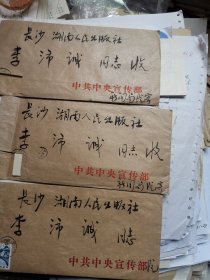 长沙 湖南人民出版社
李沛诚 同志收
中共中央宣传部
长沙 湖南人民出版社
李沛诚 同志收
中共中央宣传部
长沙 湖南人民出版社
李沛诚 同志
中共中央宣传部